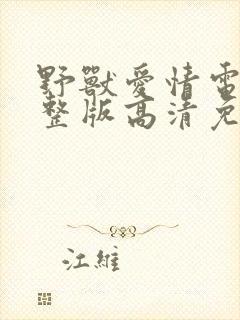 野獸愛情電
整版高清免
江維